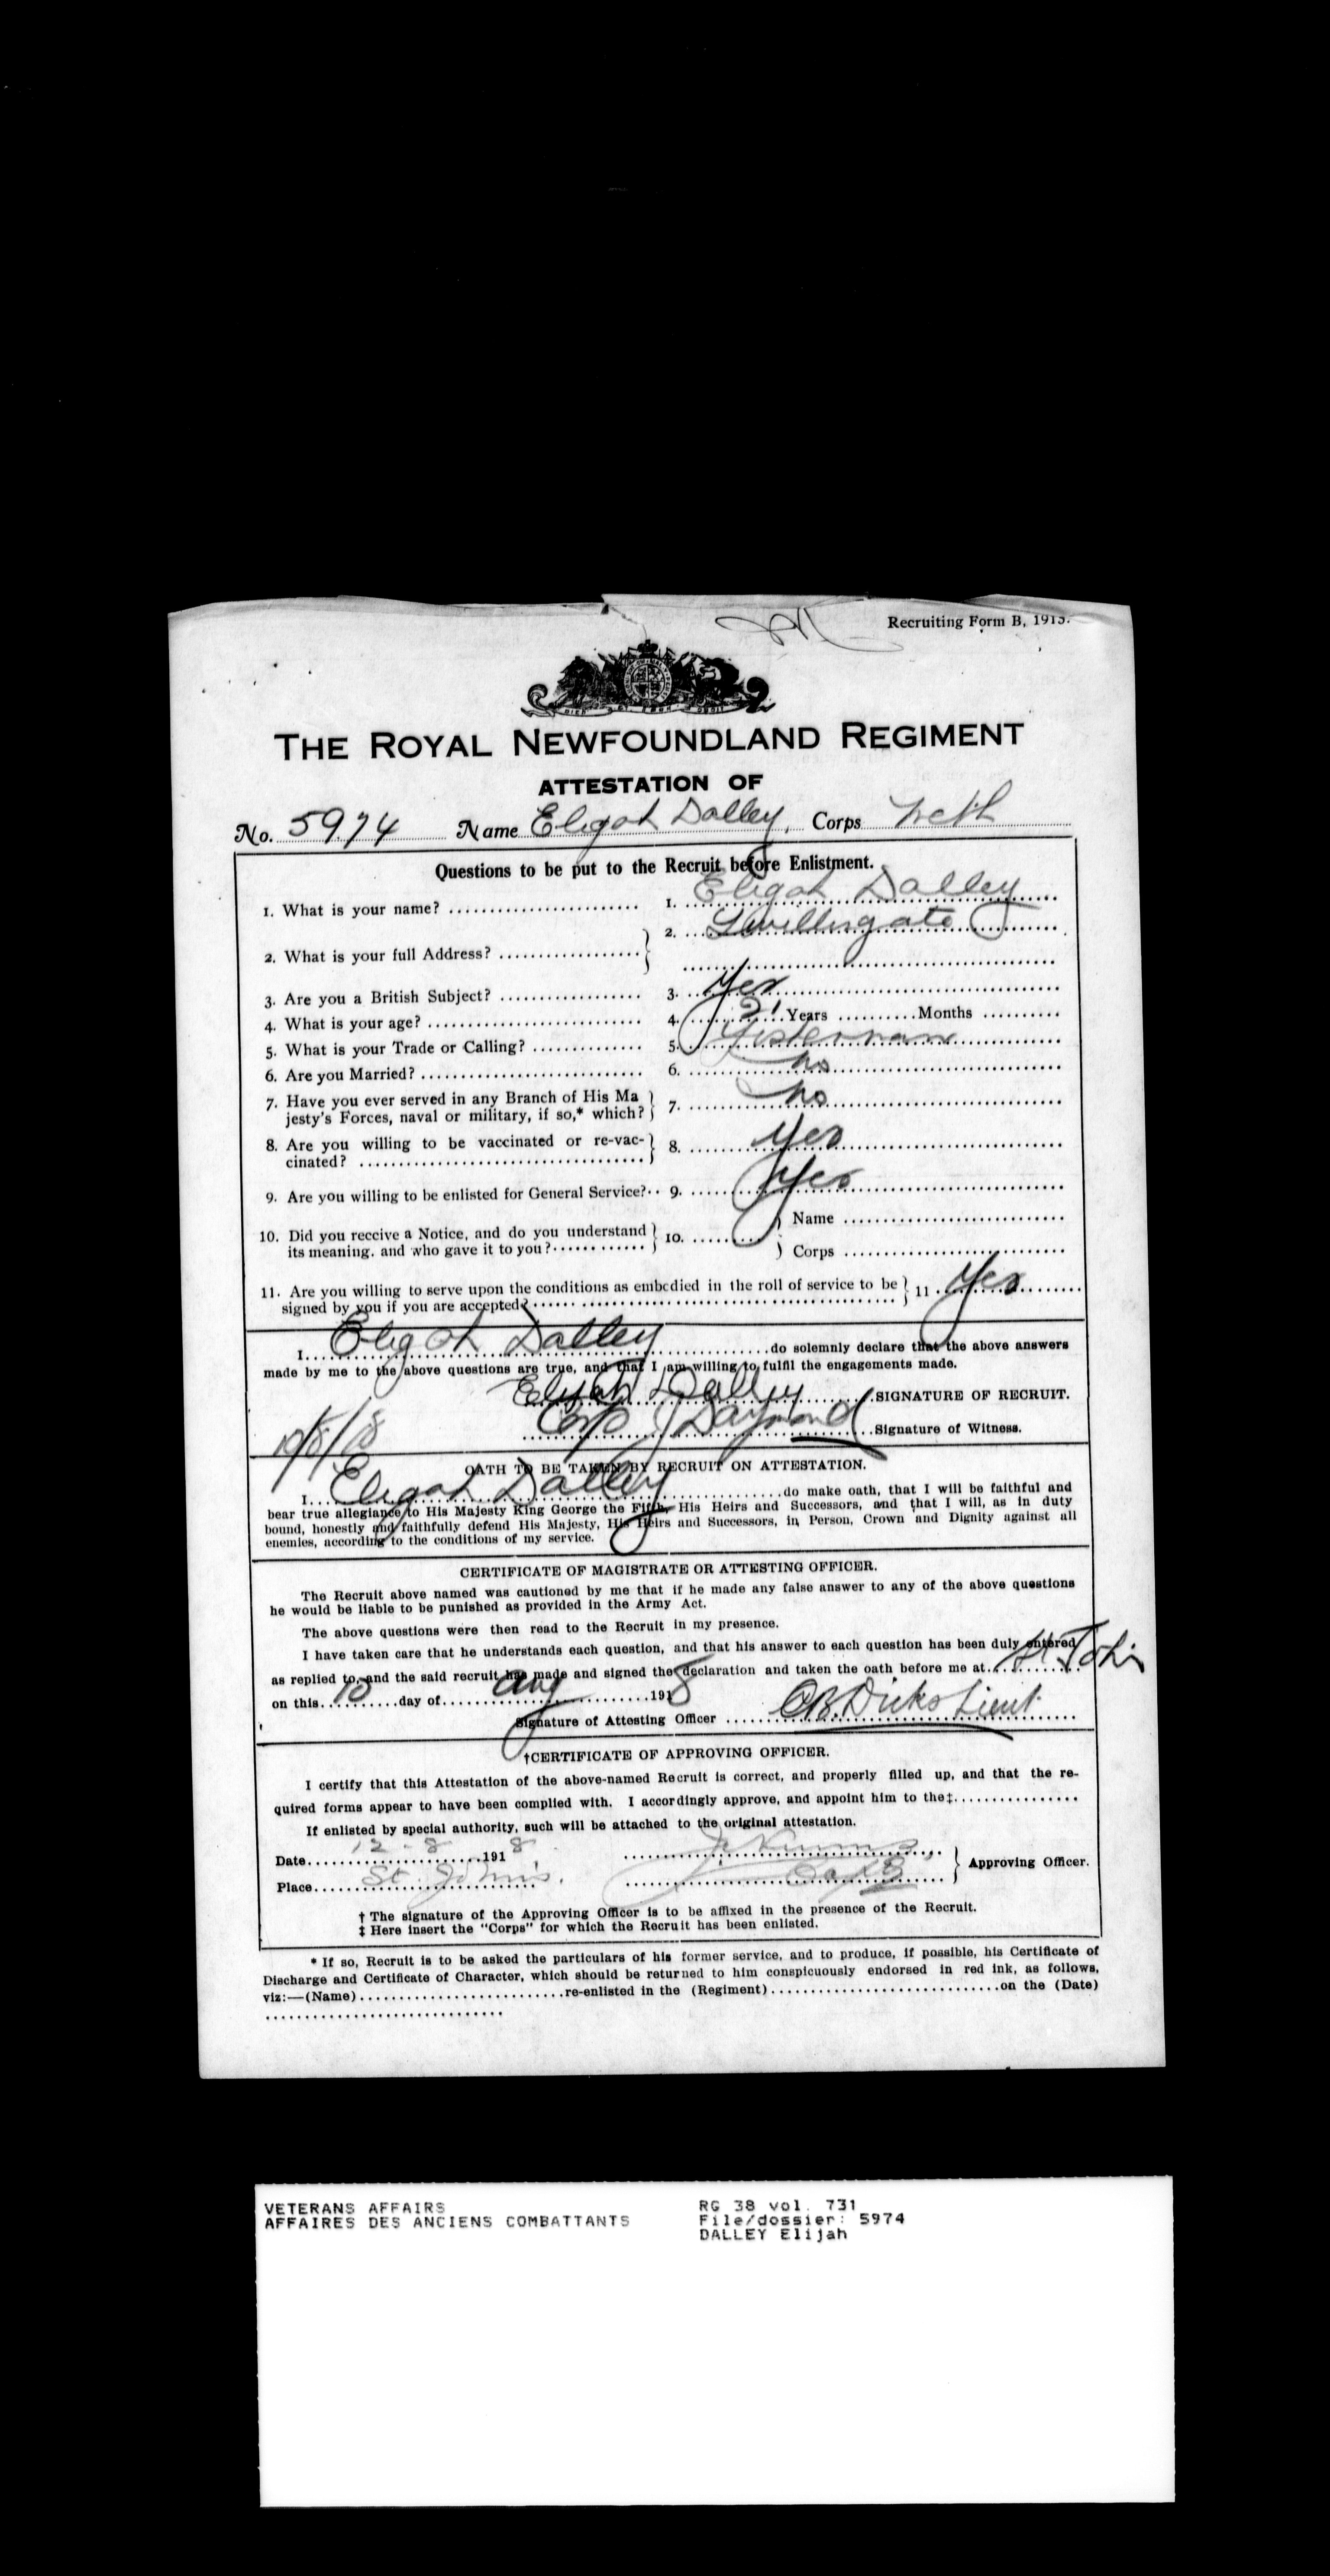 Recruiting Form B, 1915.
THE ROYAL NEWFOUNDLAND REGIMENT
ATTESTATION OF
No. 5974 Name Eligah Dalley, Corps Meth
Questions to be put to the Recruit before Enlistment.
1. What is your name? 1. Eligah Dalley
2. What is your full Address? 2. Twillingate
3. Are you a British Subject? 3. Yes
4. What is your age? 4. 21 Years Months
5. What is your Trade or Calling? 5. Fisherman
6. Are you Married? 6. No
7. Have you ever served in any Branch of His Ma
jesty's Forces, naval or military, if so,* which? 7. No
8. Are you willing to be vaccinated or re-vac-
cinated? 8. Yes
9. Are you willing to be enlisted for General Service? 9. Yes
10. Did you receive a Notice, and do you understand
its meaning, and who gave it to you? 10. Name
Corps
11. Are you willing to serve upon the conditions as embodied in the roll of service to be
signed by you if you are accepted? 11 Yes
I Eligah Dalley do solemnly declare that the above answers
made by me to the above questions are true, and that I am willing to fulfil the engagements made.
Elijah Dalley SIGNATURE OF RECRUIT.
Corp J Daymond Signature of Witness.
10/8/18
OATH TO BE TAKEN BY RECRUIT ON ATTESTATION.
I Eligah Dalley do make oath, that I will be faithful and
bear true allegiance to His Majesty King George the Fifth, His Heirs and Successors, and that I will, as in duty
bound, honestly and faithfully defend His Majesty, His Heirs and Successors, in Person, Crown and Dignity against all
enemies, according to the conditions of my service.
CERTIFICATE OF MAGISTRATE OR ATTESTING OFFICER.
The Recruit above named was cautioned by me that if he made any false answer to any of the above questions
he would be liable to be punished as provided in the Army Act.
The above questions were then read to the Recruit in my presence.
I have taken care that he understands each question, and that his answer to each question has been duly entered
as replied to, and the said recruit has made and signed the declaration and taken the oath before me at St Johns
on this 10 day of Aug 1918
Signature of Attesting Officer C.B. Dicks Lieut.
†CERTIFICATE OF APPROVING OFFICER.
I certify that this Attestation of the above-named Recruit is correct, and properly filled up, and that the re-
quired forms appear to have been complied with. I accordingly approve, and appoint him to the‡
If enlisted by special authority, such will be attached to the original attestation.
Date 12-8 1918
Place St. John's. Capt Approving Officer.
† The signature of the Approving Officer is to be affixed in the presence of the Recruit.
‡ Here insert the "Corps" for which the Recruit has been enlisted.
* If so, Recruit is to be asked the particulars of his former service, and to produce, if possible, his Certificate of
Discharge and Certificate of Character, which should be returned to him conspicuously endorsed in red ink, as follows,
viz:—(Name) re-enlisted in the (Regiment) on the (Date)
VETERANS AFFAIRS
AFFAIRES DES ANCIENS COMBATTANTS
RG 38 vol. 731
File/dossier: 5974
DALLEY Elijah